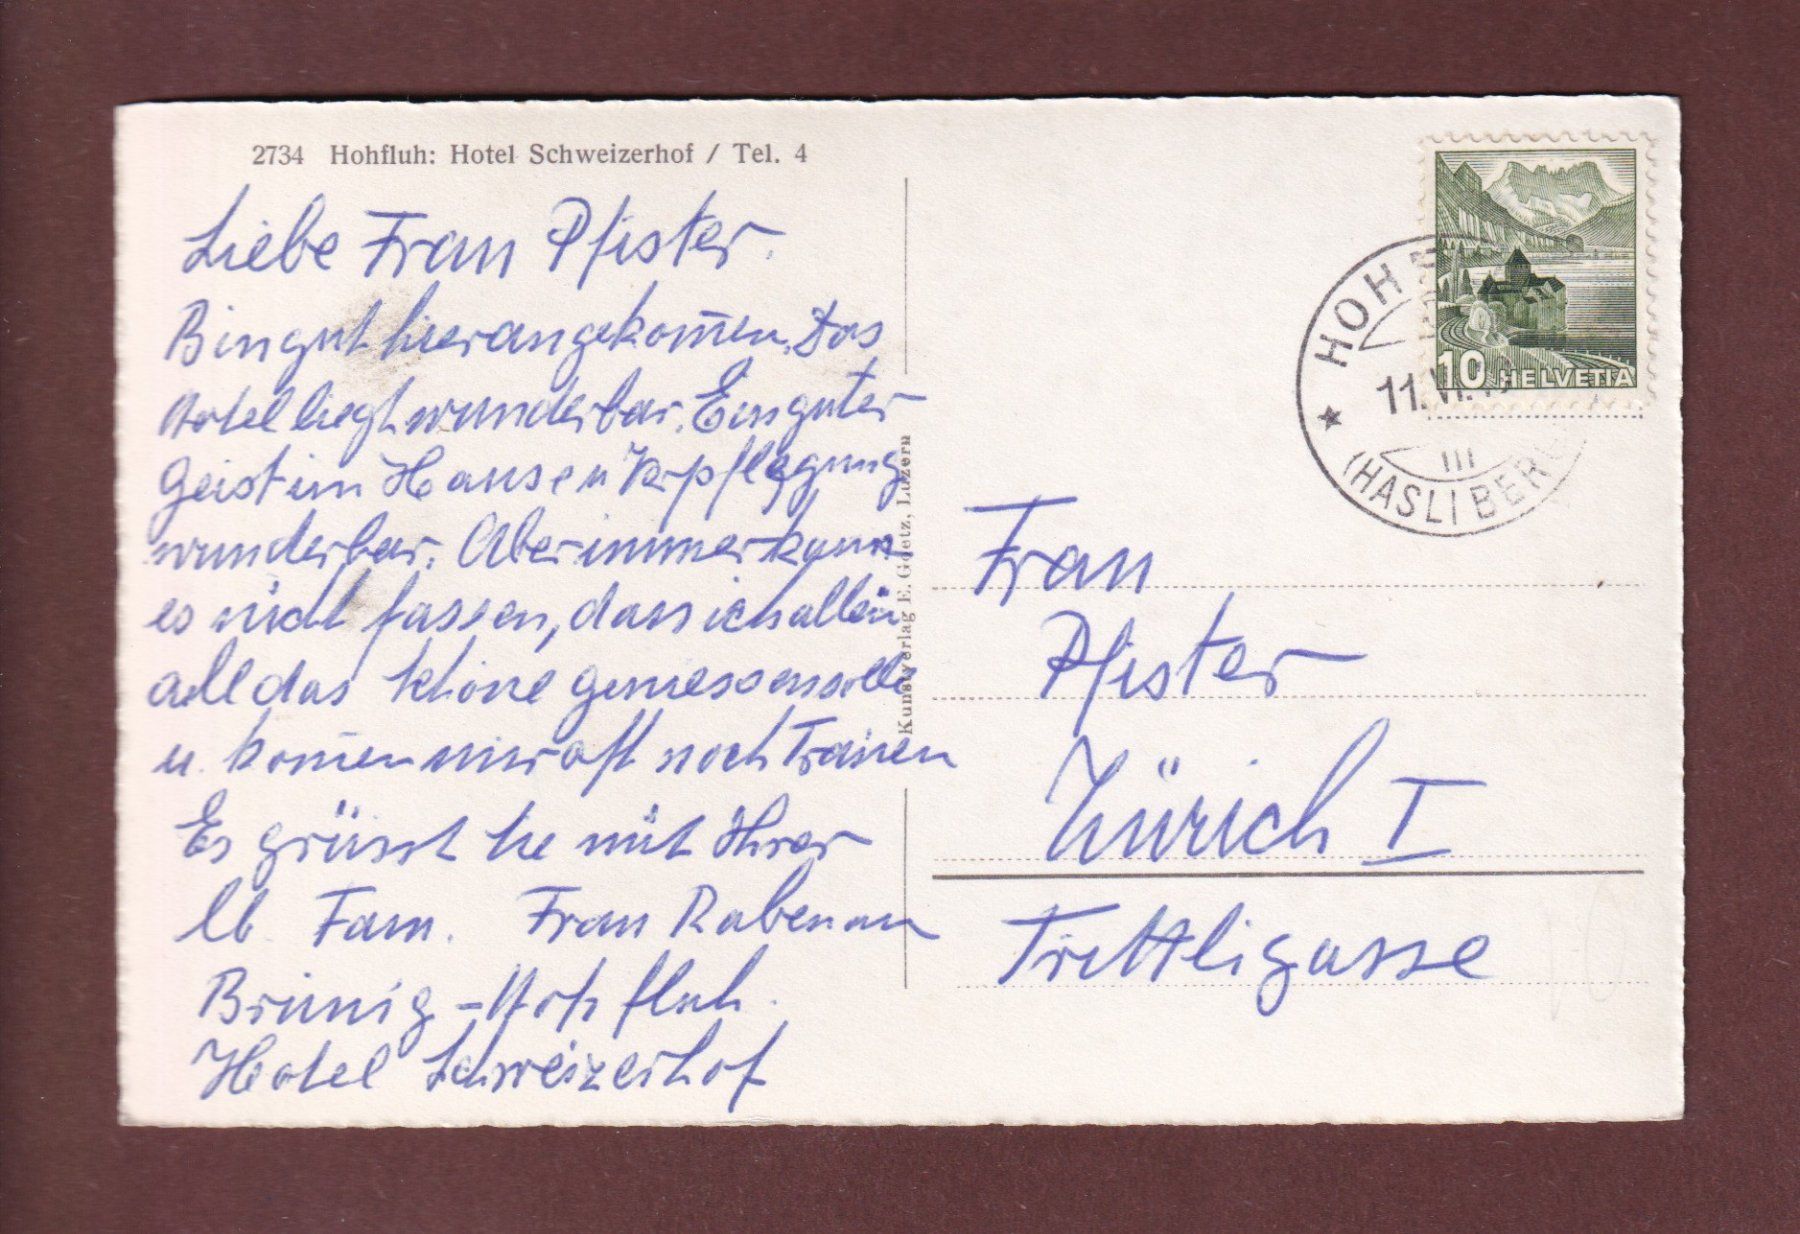 2734 Hohfluh: Hotel Schweizerhof / Tel. 4
Liebe Frau Pfister.
Bin gut hier angekom̅en. Das
Hotel liegt wunderbar. Ein guter
Geist im Hause u Verpflegung
wunderbar. Aber immer kann
es nicht fassen, dass ich allein
all das Schöne geniessen soll
u. kom̅en mir oft noch Tränen
Es grüsst Sie mit Ihrer
lb. Fam. Frau Rabenau
Brünig - Hohfluh.
Hotel Schweizerhof
Kunstverlag E. Goetz, Luzern
10 HELVETIA
HOH
11.VI.
III
(HASLIBERG
Frau
Pfister
Zürich I
Trittligasse